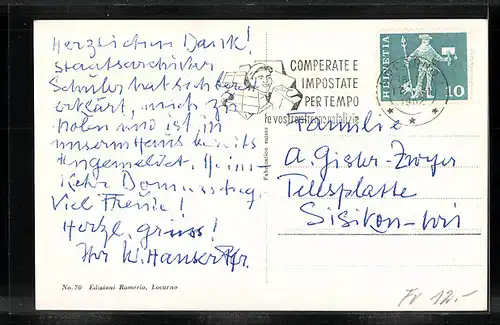 Herzlichen Dank!
Staatsarchivar
Schuler hat sich bereit
erklärt, mich zu
holen und ist in
unserm Haus bereits
angemeldet. Heim-
kehr Donnerstag.
Viel Freude!
Herzl. grüss!
Ihr W. Hauser Pfr.
No. 70 Edizioni Romerio, Locarno
Fabrication suisse
COMPERATE E
IMPOSTATE
PER TEMPO
le vostre strenne natalizie
HELVETIA
10
Familie
A. Gisler-Zwyer
Tellsplatte
Sisikon-Uri
Fr 12.-